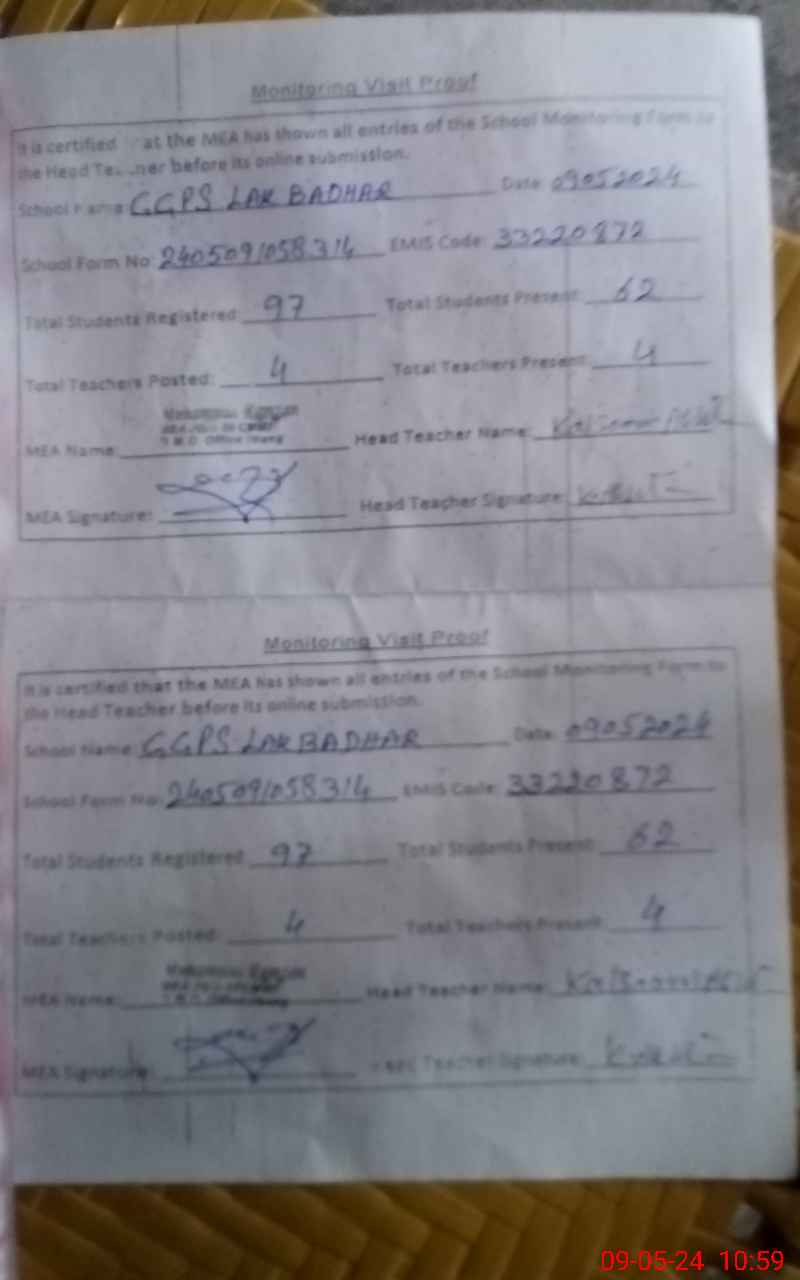 Monitoring Visit Proof
It is certified at the MEA has shown all entries of the School Monitoring Form to
the Head before its online submission.
School GGPS LAK BADHAR Date: 09052024
School Form No: 2405091058314 EMIS Code: 33220872
Total Students Registered: 97 Total Students Present: 62
Total Teachers Posted: 4 Total Teachers Present: 4
MEA Name: Head Teacher Name:
MEA Signature: Head Teacher Signature:
Monitoring Visit Proof
It is certified that the MEA has shown all entries of the School Monitoring Form to
the Head Teacher before its online submission.
School Name: GGPS LAK BADHAR Date: 09052024
School Form No: 2405091058314 EMIS Code: 33220872
Total Students Registered: 97 Total Students Present: 62
Total Teachers Posted: 4 Total Teachers Present: 4
MEA Name: Head Teacher Name:
MEA Signature: Teacher Signature:
09-05-24 10:59